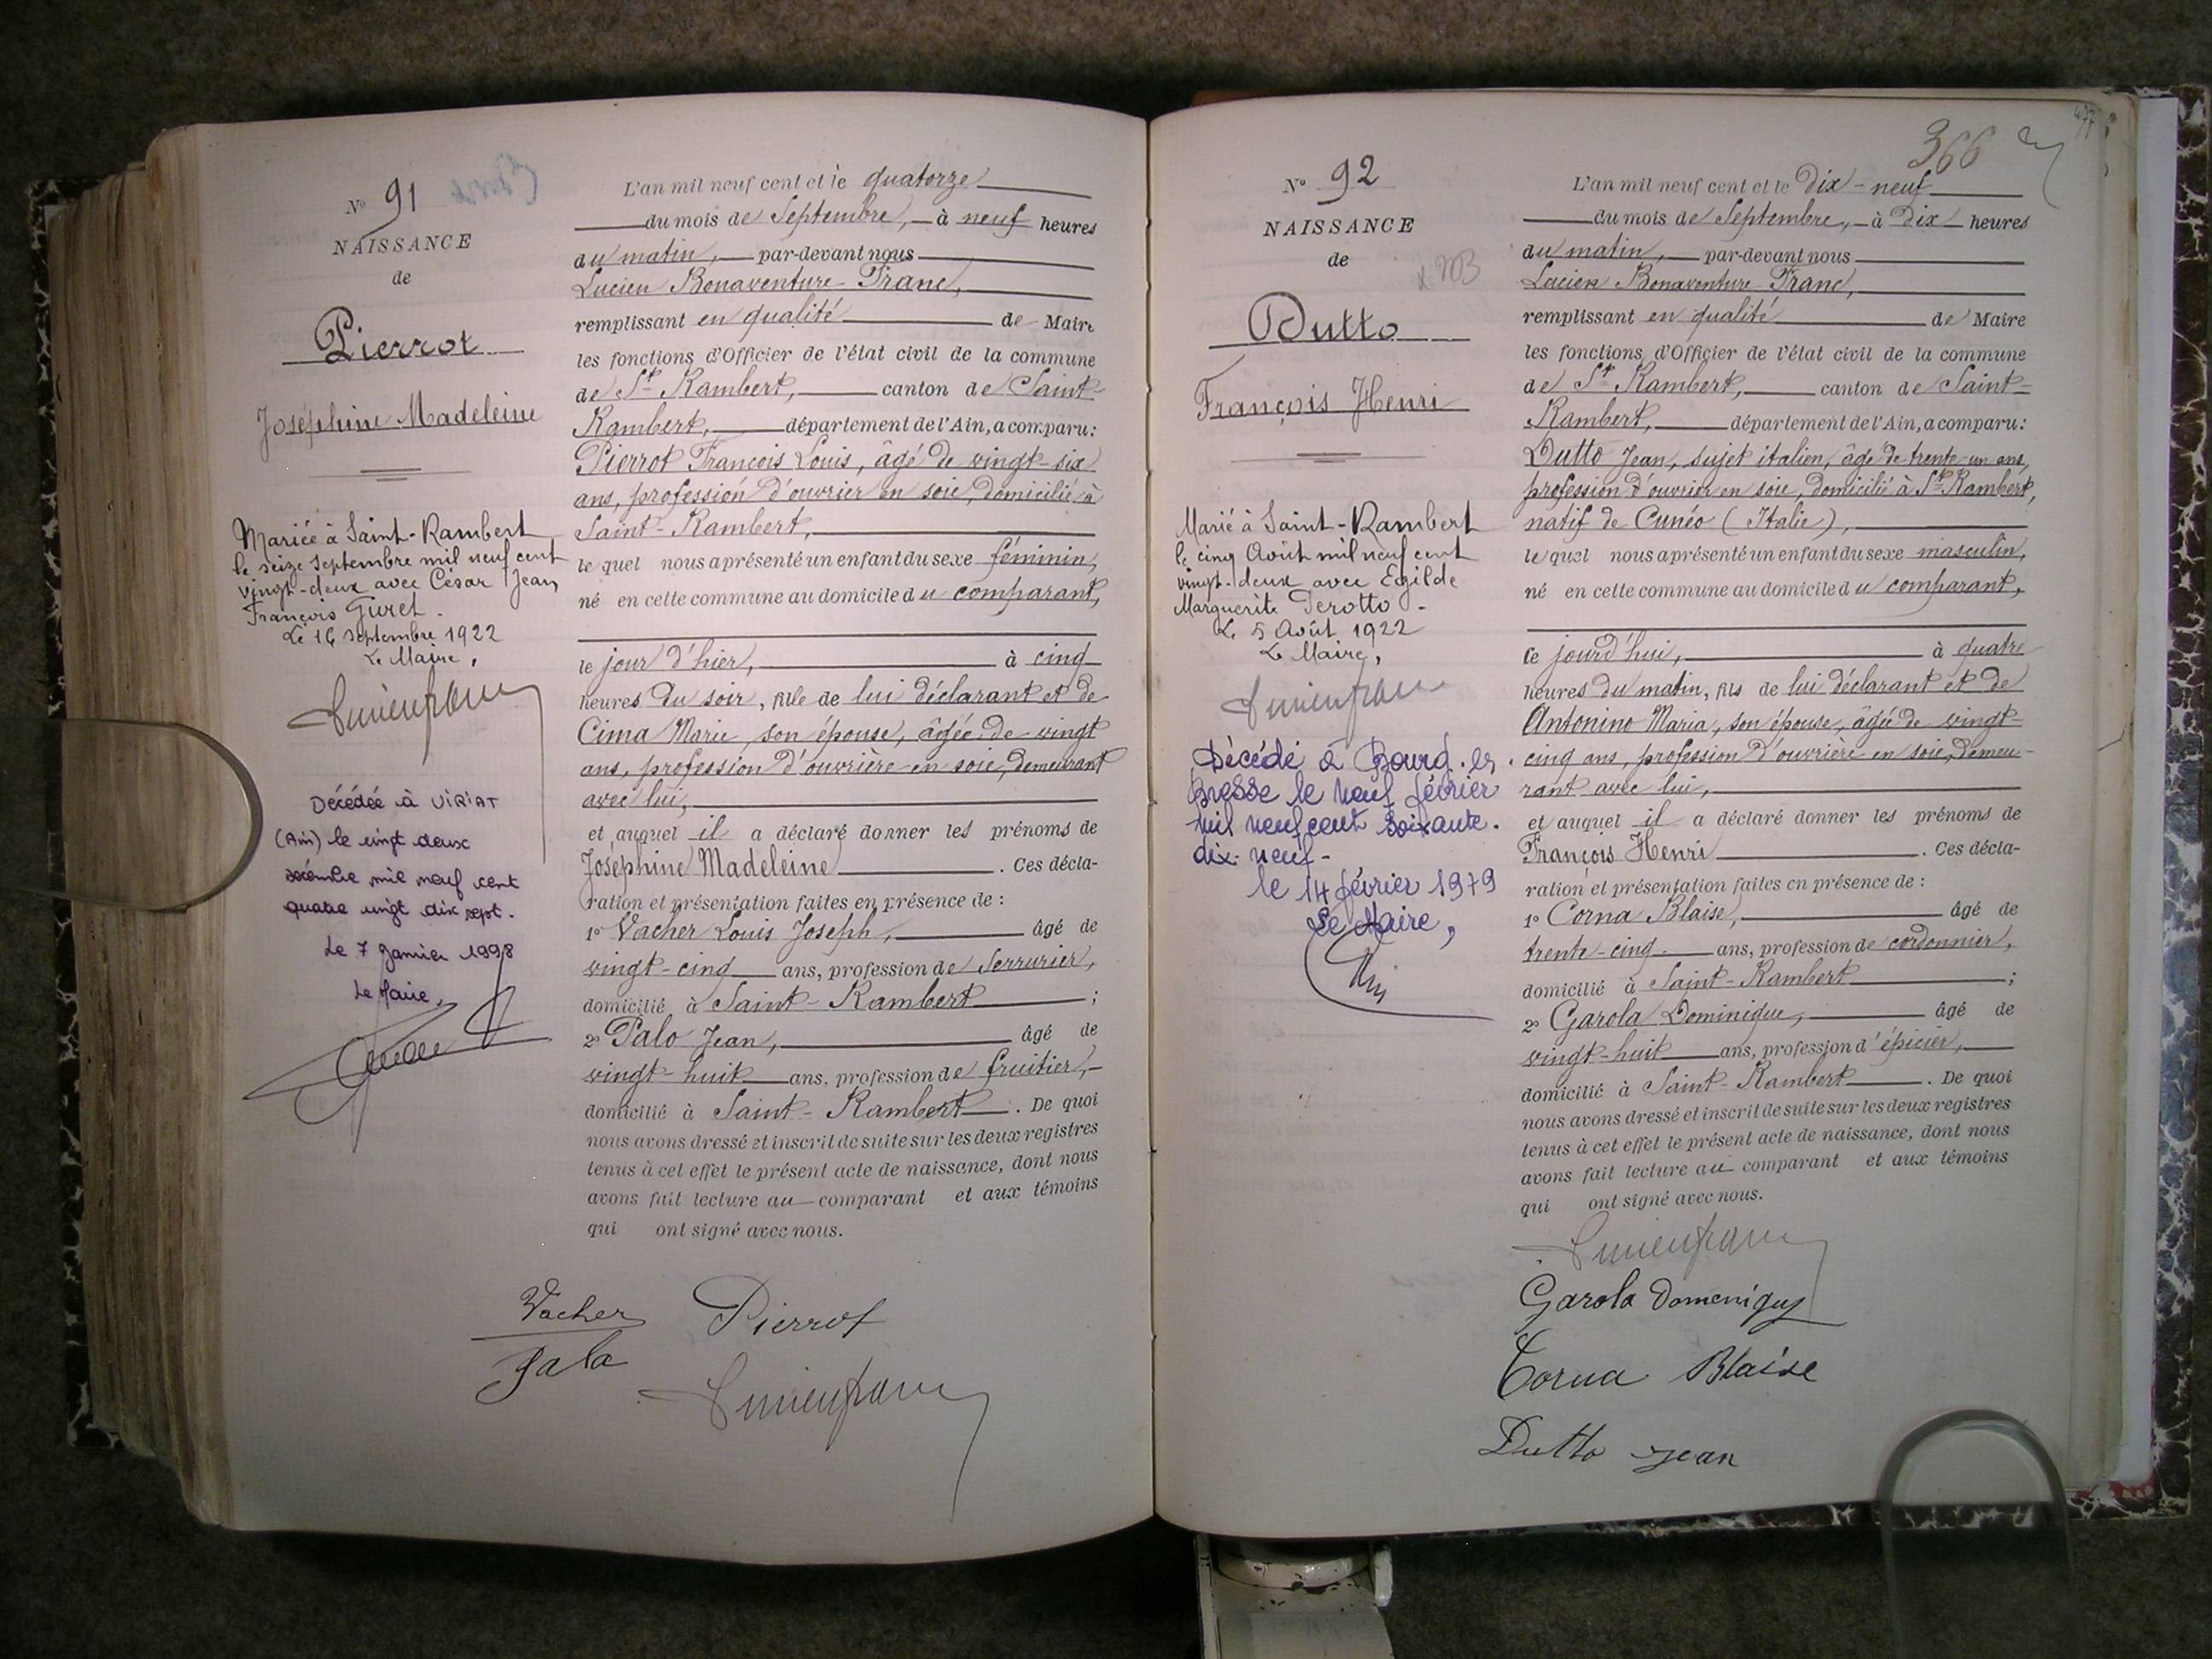 N° 91
NAISSANCE
de
Pierrot
Joséphine Madeleine
Mariée à Saint-Rambert
le seize Septembre mil neuf cent
vingt-deux avec César Jean
François Guret.
Le 16 Septembre 1922
Le Maire,
Décédée à VIRIAT
(Ain) le vingt deux
décembre mil neuf cent
quatre vingt dix sept.
Le 7 Janvier 1998
Le Maire,
L'an mil neuf cent et le quatorze
du mois de Septembre, à neuf heures
du matin, par-devant nous
Lucien Bonaventure Franc,
remplissant en qualité de Maire
les fonctions d'Officier de l'état civil de la commune
de St Rambert, canton de Saint-
Rambert, département de l'Ain, a comparu:
Pierrot François Louis, âgé de vingt-six
ans, profession d'ouvrier en soie, domicilié à
Saint-Rambert,
le quel nous a présenté un enfant du sexe féminin,
né en cette commune au domicile du comparant,
le jour d'hier, à cinq
heures du soir, fille de lui déclarant et de
Cima Marie, son épouse, âgée de vingt
ans, profession d'ouvrière en soie, demeurant
avec lui,
et auquel il a déclaré donner les prénoms de
Joséphine Madeleine. Ces décla-
ration et présentation faites en présence de :
1° Vacher Louis Joseph, âgé de
vingt-cinq ans, profession de serrurier,
domicilié à Saint-Rambert ;
2° Palo Jean, âgé de
vingt-huit ans, profession de fruitier,
domicilié à Saint-Rambert. De quoi
nous avons dressé et inscrit de suite sur les deux registres
tenus à cet effet le présent acte de naissance, dont nous
avons fait lecture au comparant et aux témoins
qui ont signé avec nous.
Vacher Pierrot
Palo
Lucien Franc
366
477
N° 92
NAISSANCE
de
Dutto
François Henri
Marié à Saint-Rambert
le cinq Août mil neuf cent
vingt-deux avec Egilde
Marguerite Perotto.
Le 5 Août 1922
Le Maire,
Lucien Franc
Décédé à Bourg-en-
Bresse le neuf février
mil neuf cent soixante-
dix-neuf-
le 14 février 1979
Le Maire,
L'an mil neuf cent et le dix-neuf
du mois de Septembre, à dix heures
du matin, par-devant nous
Lucien Bonaventure Franc,
remplissant en qualité de Maire
les fonctions d'Officier de l'état civil de la commune
de St Rambert, canton de Saint-
Rambert, département de l'Ain, a comparu:
Dutto Jean, sujet italien, âgé de trente-un ans,
profession d'ouvrier en soie, domicilié à St Rambert,
natif de Cunéo (Italie),
le quel nous a présenté un enfant du sexe masculin,
né en cette commune au domicile du comparant,
ce jourd'hui, à quatre
heures du matin, fils de lui déclarant et de
Antonino Maria, son épouse, âgée de vingt-
cinq ans, profession d'ouvrière en soie, demeu-
rant avec lui,
et auquel il a déclaré donner les prénoms de
François Henri. Ces décla-
ration et présentation faites en présence de :
1° Corna Blaise, âgé de
trente-cinq ans, profession de cordonnier,
domicilié à Saint-Rambert ;
2° Garola Dominique, âgé de
vingt-huit ans, profession d'épicier,
domicilié à Saint-Rambert. De quoi
nous avons dressé et inscrit de suite sur les deux registres
tenus à cet effet le présent acte de naissance, dont nous
avons fait lecture au comparant et aux témoins
qui ont signé avec nous.
Lucien Franc
Garola Domenique
Corna Blaise
Dutto Jean